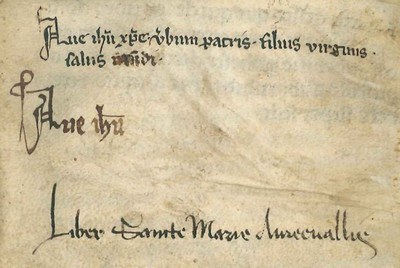 Aue ihū xp̄e v̄bum patris · filius virginis ·
salus mūdi ·
Aue ihū
Liber Sancte Marie Aureeuallis